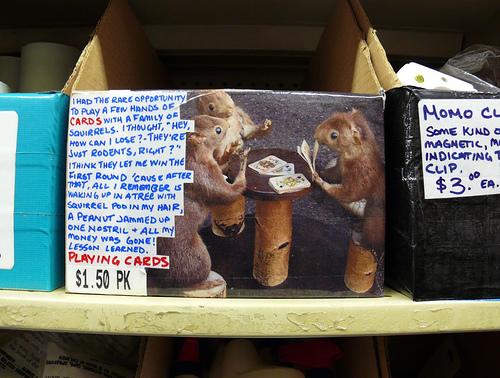 I HAD THE RARE OPPORTUNITY
TO PLAY A FEW HANDS OF
CARDS WITH A FAMILY OF
SQUIRRELS. I THOUGHT, "HEY,
HOW CAN I LOSE? - THEY'RE
JUST RODENTS, RIGHT?"
I THINK THEY LET ME WIN THE
FIRST ROUND 'CAUSE AFTER
THAT, ALL I REMEMBER IS
WAKING UP IN A TREE WITH
SQUIRREL POO IN MY HAIR,
A PEANUT JAMMED UP
ONE NOSTRIL + ALL MY
MONEY WAS GONE!
LESSON LEARNED.
PLAYING CARDS
$1.50 PK
MOMO CL
SOME KIND
MAGNETIC, M
INDICATING
CLIP.
$3.00 EA